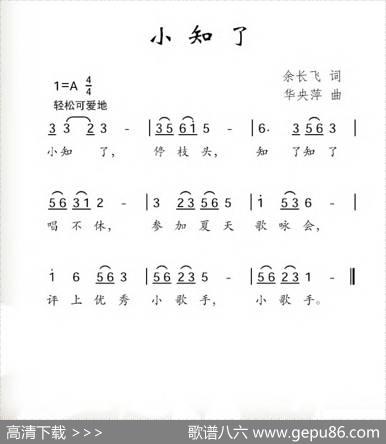 小知了
余长飞 词
1=A 4/4
华央萍 曲
轻松可爱地
3 3 2 3 - | 3 5 6 1 5 - | 6· 3 3 5 6 3
小知 了, 停枝头, 知 了知了
5 6 3 1 2 - | 3 2 3 5 6 5 | 1 5 3 6 -
唱不休, 参加夏天 歌咏会,
1 6 5 6 3 | 5 6 2 3 5 - | 5 6 2 3 1 - ‖
评上优秀 小歌手, 小歌手。
高清下载 >>>
歌谱八六 www.gepu86.com